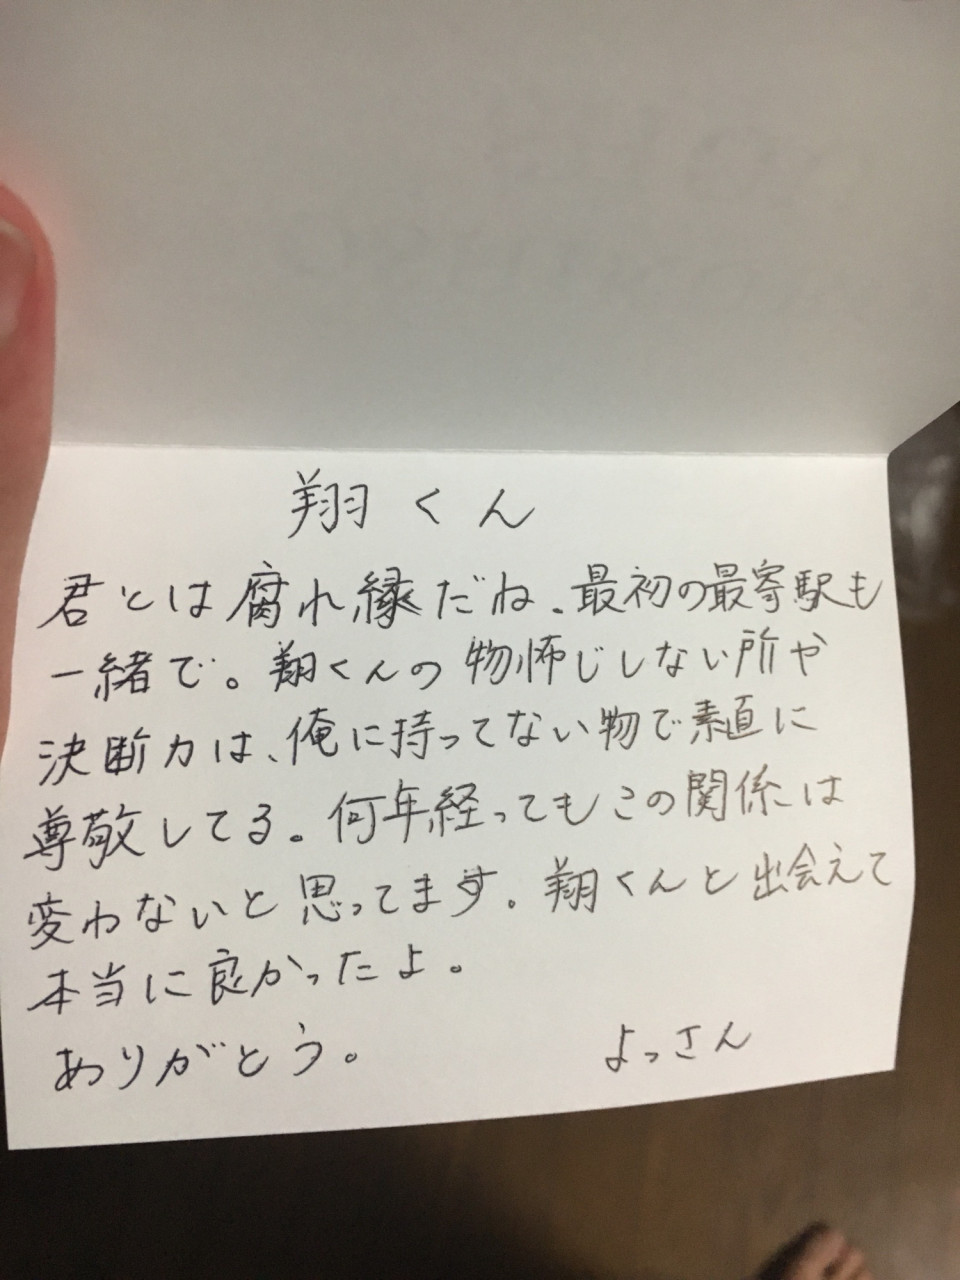 翔くん
君とは腐れ縁だね、最初の最寄駅も
一緒で。翔くんの物怖じしない所や
決断力は、俺に持ってない物で素直に
尊敬してる。何年経ってもこの関係は
変わないと思ってます。翔くんと出会えて
本当に良かったよ。
ありがとう。 よっさん